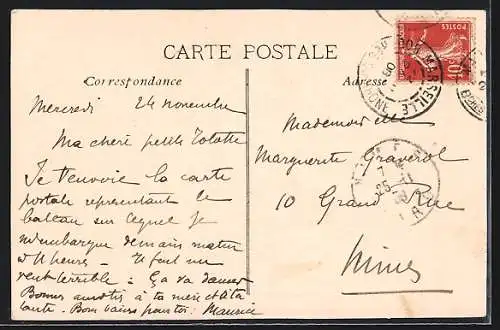 CARTE POSTALE
Correspondance
Adresse
POSTES
10c
MARSEILLE
RHONE
NIMES
Mercredi 24 novembre
Ma chère petite Totolle
Je t'envoie la carte
postale representant le
bateau sur lequel je
m'embarque demain matin
à 11 heures — Il fait un
vent terrible : Ça va danser
Bonnes amitiés à ta mère et à ta
tante. Bons baisers pour toi : Maurice
Mademoiselle
Marguerite Graverol
10 Grand Rue
Nimes